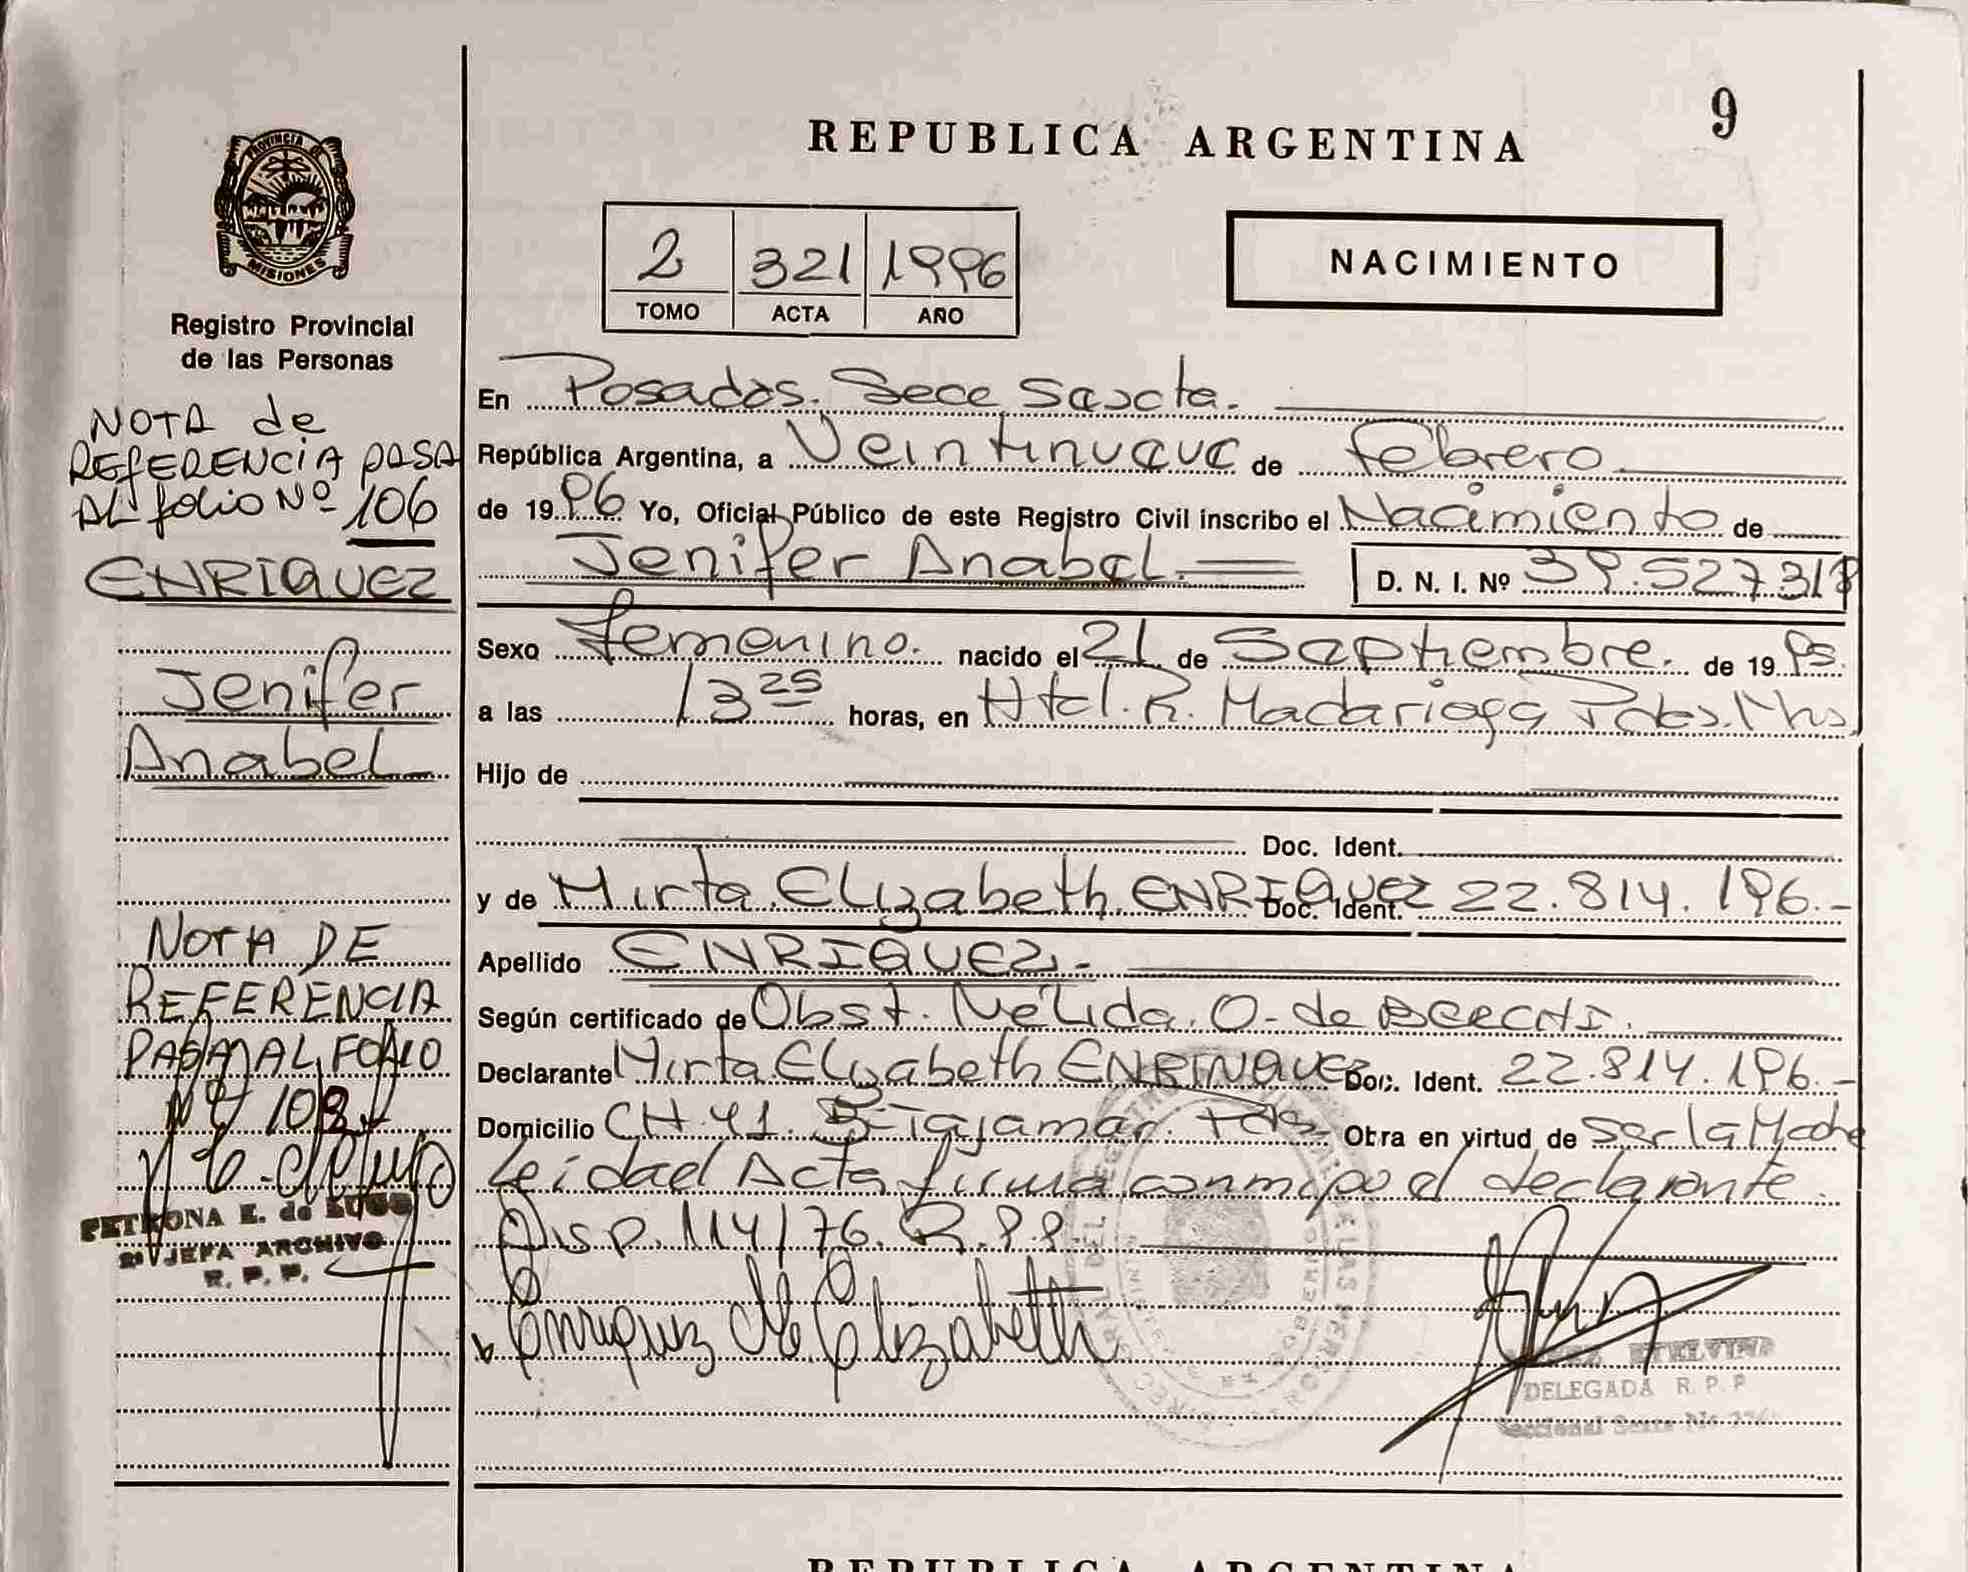 9
REPUBLICA ARGENTINA
PROVINCIA DE
MISIONES
Registro Provincial
de las Personas
2 321 1996
TOMO ACTA AÑO
NACIMIENTO
NOTA de
REFERENCIA PASA
AL folio Nº 106
ENRIQUEZ
Jenifer
Anabel
NOTA DE
REFERENCIA
PASA AL FOLIO
Nº 108
PETRONA E. de LUGO
JEFA ARCHIVO
R. P. P.
En Posadas. Secc Sexta.
República Argentina, a Veintinueve de Febrero
de 1996 Yo, Oficial Público de este Registro Civil inscribo el Nacimiento de
Jenifer Anabel. D. N. I. Nº 39.527.318
Sexo femenino. nacido el 21 de Septiembre. de 1995.
a las 13 25 horas, en Htal. R. Madariaga Pdas. Mns
Hijo de
Doc. Ident.
y de Mirta Elizabeth ENRIQUEZ Doc. Ident. 22.814.196.-
Apellido ENRIQUEZ.-
Según certificado de Obst. Nélida. O. de
Declarante Mirta Elizabeth ENRINQUEZ Doc. Ident. 22.814.196.-
Domicilio CH. 41. Bº Tajamar. Pdas Obra en virtud de ser la Madre
Leida el Acta firma conmigo el declarante.
Disp. 114/76. R.P.P.
Enriquez Elizabeth
ETELVINA
DELEGADA R. P. P
Seccional Sexta
REPUBLICA ARGENTINA